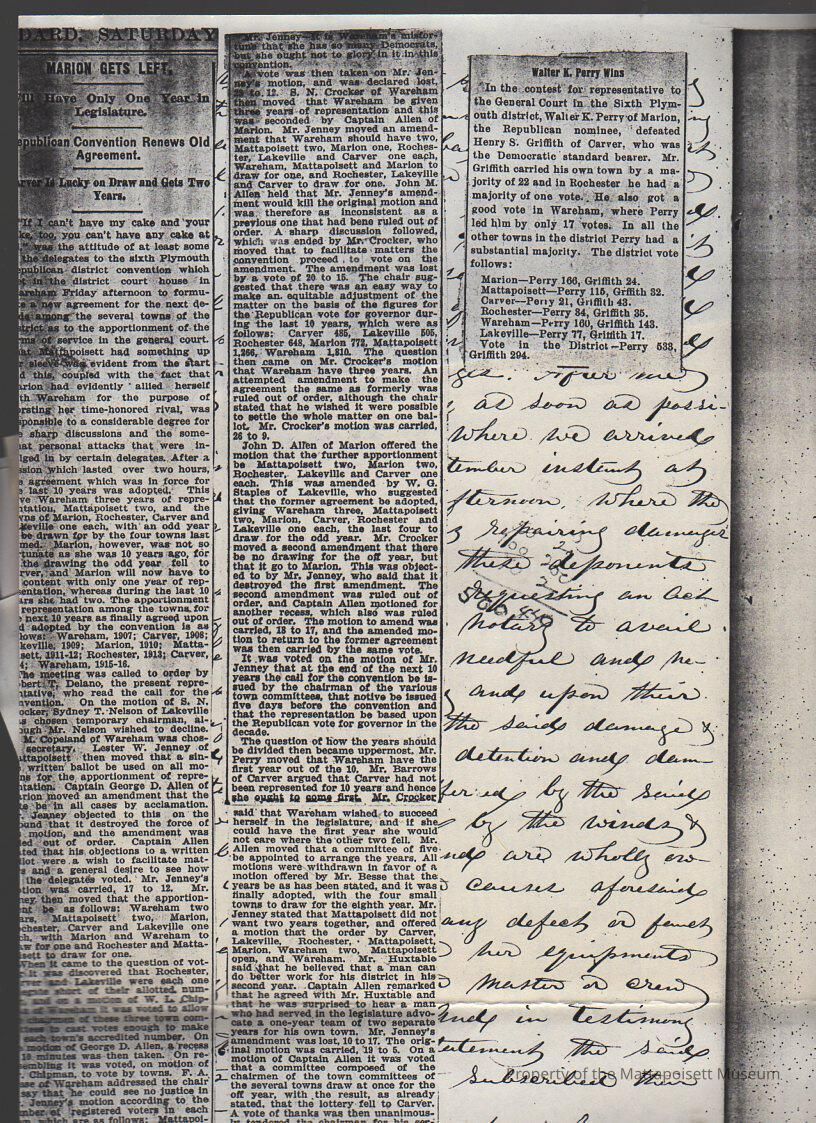 DARD: SATURDAY
MARION GETS LEFT.
Have Only One Year in
Legislature.
epublican Convention Renews Old
Agreement.
rver Is Lucky on Draw and Gets Two
Years.
"If I can't have my cake and your
ke, too, you can't have any cake at
was the attitude of at least some
the delegates to the sixth Plymouth
epublican district convention which
t in the district court house in
areham Friday afternoon to formu-
e a new agreement for the next de-
de among the several towns of the
strict as to the apportionment of the
ms of service in the general court.
at Mattapoisett had something up
r sleeve was evident from the start
d this, coupled with the fact that
arion had evidently allied herself
th Wareham for the purpose of
orsting her time-honored rival, was
ponsible to a considerable degree for
e sharp discussions and the some-
at personal attacks that were in-
lged in by certain delegates. After a
ssion which lasted over two hours,
e agreement which was in force for
e last 10 years was adopted. This
ve Wareham three years of repre-
ntation, Mattapoisett two, and the
wns of Marion, Rochester, Carver and
keville one each, with an odd year
be drawn for by the four towns last
med. Marion, however, was not so
tunate as she was 10 years ago, for
the drawing the odd year fell to
rver, and Marion will now have to
content with only one year of rep-
entation, whereas during the last 10
ars she had two. The apportionment
representation among the towns for
e next 10 years as finally agreed upon
d adopted by the convention is as
lows: Wareham, 1907; Carver, 1908;
keville, 1909; Marion, 1910; Matta-
sett, 1911-12; Rochester, 1913; Carver,
4; Wareham, 1915-16.
The meeting was called to order by
bert T. Delano, the present repre-
ntative, who read the call for the
nvention. On the motion of S. N.
ocker, Sydney T. Nelson of Lakeville
s chosen temporary chairman, al-
ough Mr. Nelson wished to decline.
M. Copeland of Wareham was chos-
secretary. Lester W. Jenney of
attapoisett then moved that a sin-
written ballot be used on all mo-
ns for the apportionment of repre-
ntation. Captain George D. Allen of
arion moved an amendment that the
te be in all cases by acclamation.
Jenney objected to this on the
ound that it destroyed the force of
motion, and the amendment was
led out of order. Captain Allen
ted that his objections to a written
lot were a wish to facilitate mat-
s and a general desire to see how
the delegates voted. Mr. Jenney's
tion was carried, 17 to 12. Mr.
ney then moved that the apportion-
nt be as follows: Wareham two
ars, Mattapoisett two, Marion,
chester, Carver and Lakeville one
ch, with Marion and Wareham to
aw for one and Rochester and Matta-
isett to draw for one.
When it came to the question of vot-
it was discovered that Rochester,
rver and Lakeville were each one
short of their allotted num-
on a motion of W. L. Chip-
was voted to allow
of these three town com-
ees to cast votes enough to make
each town's accredited number. On
motion of George D. Allen, a recess
10 minutes was then taken. On re-
sembling it was voted, on motion of
Chipman, to vote by towns. F. A.
se of Wareham addressed the chair
say that he could see no justice in
Jenney's motion according to the
mber of registered voters in each
which are as follows: Mattapoi-
Mr. Jenney—It is Wareham's misfor-
tune that she has so many Democrats,
but she ought not to glory in it in this
convention.
A vote was then taken on Mr. Jen-
ney's motion, and was declared lost,
23 to 12. S. N. Crocker of Wareham
then moved that Wareham be given
three years of representation and this
was seconded by Captain Allen of
Marion. Mr. Jenney moved an amend-
ment that Wareham should have two,
Mattapoisett two, Marion one, Roches-
ter, Lakeville and Carver one each,
Wareham, Mattapoisett and Marion to
draw for one, and Rochester, Lakeville
and Carver to draw for one. John M.
Allen held that Mr. Jenney's amend-
ment would kill the original motion and
was therefore as inconsistent as a
previous one that had bene ruled out of
order. A sharp discussion followed,
which was ended by Mr. Crocker, who
moved that to facilitate matters the
convention proceed to vote on the
amendment. The amendment was lost
by a vote of 20 to 15. The chair sug-
gested that there was an easy way to
make an equitable adjustment of the
matter on the basis of the figures for
the Republican vote for governor dur-
ing the last 10 years, which were as
follows: Carver 485, Lakeville 505,
Rochester 648, Marion 772, Mattapoisett
1,266, Wareham 1,810. The question
then came on Mr. Crocker's motion
that Wareham have three years. An
attempted amendment to make the
agreement the same as formerly was
ruled out of order, although the chair
stated that he wished it were possible
to settle the whole matter on one bal-
lot. Mr. Crocker's motion was carried,
26 to 9.
John D. Allen of Marion offered the
motion that the further apportionment
be Mattapoisett two, Marion two,
Rochester, Lakeville and Carver one
each. This was amended by W. G.
Staples of Lakeville, who suggested
that the former agreement be adopted,
giving Wareham three, Mattapoisett
two, Marion, Carver, Rochester and
Lakeville one each, the last four to
draw for the odd year. Mr. Crocker
moved a second amendment that there
be no drawing for the off year, but
that it go to Marion. This was object-
ed to by Mr. Jenney, who said that it
destroyed the first amendment. The
second amendment was ruled out of
order, and Captain Allen motioned for
another recess, which also was ruled
out of order. The motion to amend was
carried, 18 to 17, and the amended mo-
tion to return to the former agreement
was then carried by the same vote.
It was voted on the motion of Mr.
Jenney that at the end of the next 10
years the call for the convention be is-
sued by the chairman of the various
town committees, that notive be issued
five days before the convention and
that the representation be based upon
the Republican vote for governor in the
decade.
The question of how the years should
be divided then became uppermost. Mr.
Perry moved that Wareham have the
first year out of the 10. Mr. Barrows
of Carver argued that Carver had not
been represented for 10 years and hence
she ought to come first. Mr. Crocker
said that Wareham wished to succeed
herself in the legislature, and if she
could have the first year she would
not care where the other two fell. Mr.
Allen moved that a committee of five
be appointed to arrange the years. All
motions were withdrawn in favor of a
motion offered by Mr. Besse that the
years be as has been stated, and it was
finally adopted, with the four small
towns to draw for the eighth year. Mr.
Jenney stated that Mattapoisett did not
want two years together, and offered
a motion that the order by Carver,
Lakeville, Rochester, Mattapoisett,
Marion, Wareham two, Mattapoisett
open, and Wareham. Mr. Huxtable
said that he believed that a man can
do better work for his district in his
second year. Captain Allen remarked
that he agreed with Mr. Huxtable and
that he was surprised to hear a man
who had served in the legislature advo-
cate a one-year team of two separate
years for his own town. Mr. Jenney's
amendment was lost, 10 to 17. The orig-
inal motion was carried, 19 to 5. On a
motion of Captain Allen it was voted
that a committee composed of the
chairmen of the town committees of
the several towns draw at once for the
off year, with the result, as already
stated, that the lottery fell to Carver.
A vote of thanks was then unanimous-
ly tendered the chairman for his ser-
Walter K. Perry Wins
In the contest for representative to
the General Court in the Sixth Plym-
outh district, Walter K. Perry of Marion,
the Republican nominee, defeated
Henry S. Griffith of Carver, who was
the Democratic standard bearer. Mr.
Griffith carried his own town by a ma-
jority of 22 and in Rochester he had a
majority of one vote. He also got a
good vote in Wareham, where Perry
led him by only 17 votes. In all the
other towns in the district Perry had a
substantial majority. The district vote
follows:
Marion—Perry 166, Griffith 24.
Mattapoisett—Perry 115, Griffith 32.
Carver—Perry 21, Griffith 43.
Rochester—Perry 34, Griffith 35.
Wareham—Perry 160, Griffith 143.
Lakeville—Perry 77, Griffith 17.
Vote in the District—Perry 533,
Griffith 294.
as soon as possi-
where we arrived
tember instant at
fternoon, where the
repairing damages
these deponents
requesting an act
notary to avail
needful and ne-
and upon their
the said damage &
detention and dam-
fered by the said
by the winds &
and are wholly ow-
causes aforesaid
any defect or fault
her equipments
master or crew
And in testimony
tatement the said
subscribed their
Property of the Mattapoisett Museum